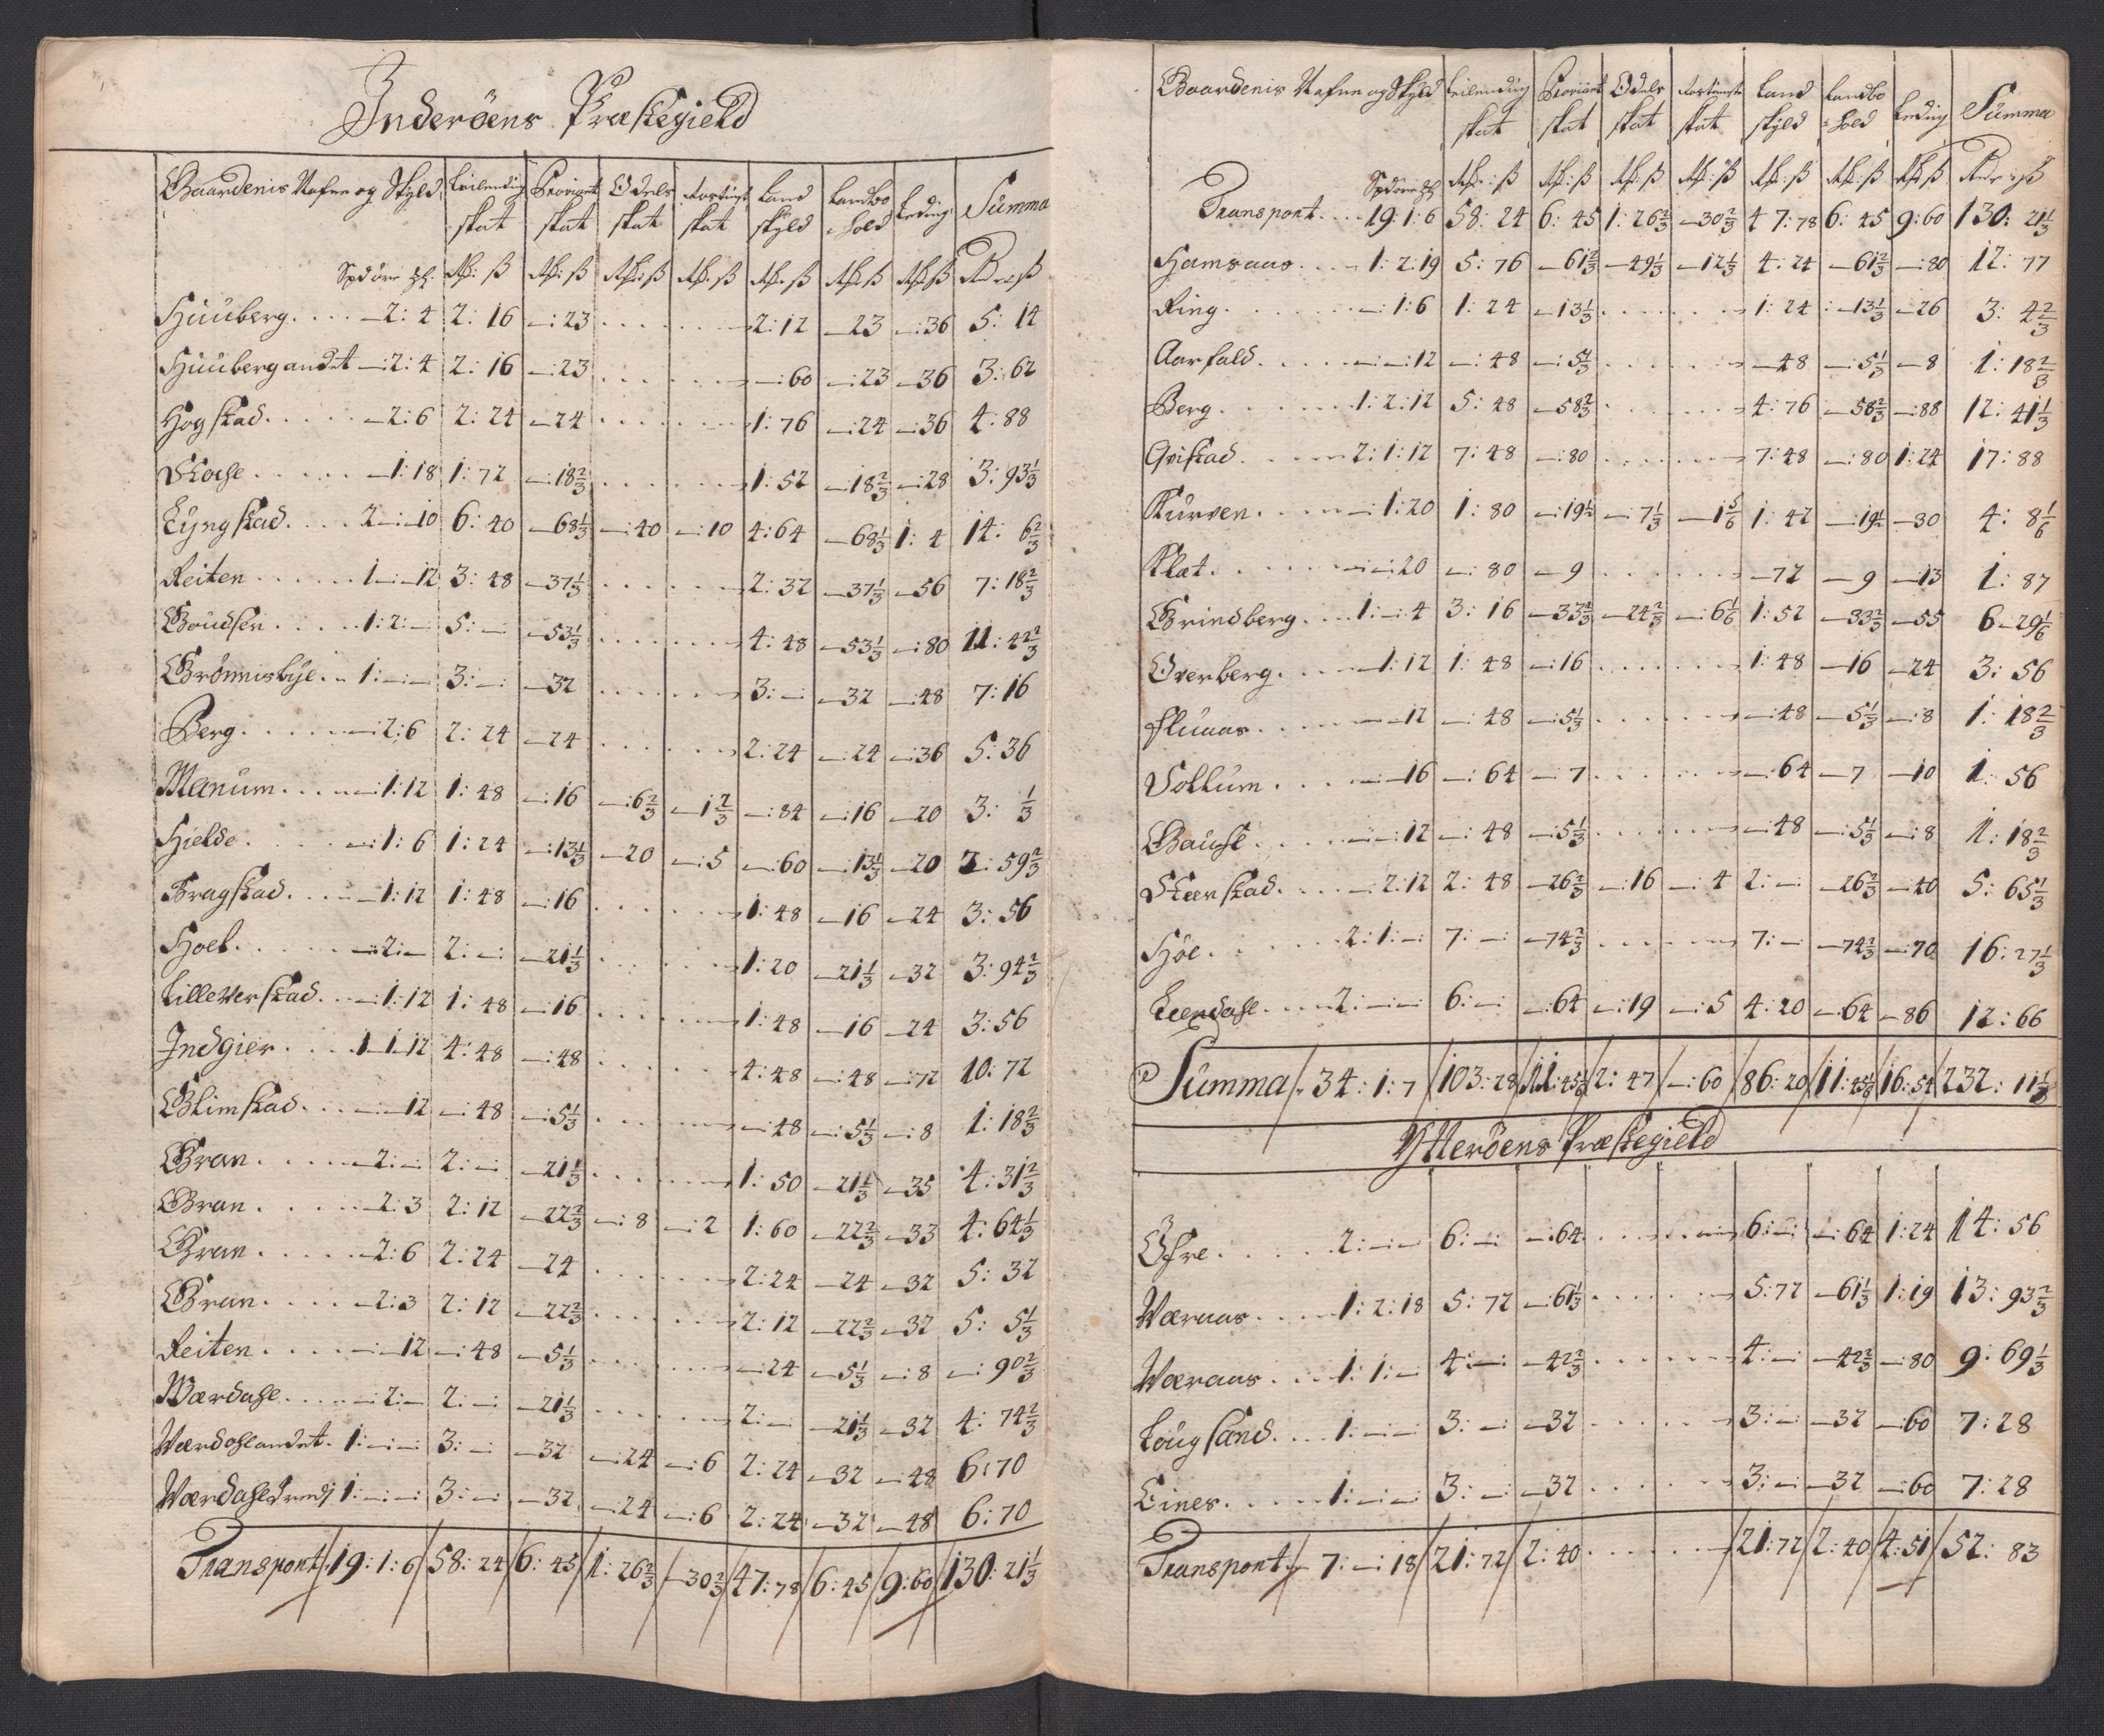 Inderöens Præstegield
Gaardenis Nafne og Skyld | Leilending skat | Proviant skat | Odels skat | | Land skyld | Landbohold | Leding | Summa
Spd öre | Rdr ß
Huuberg . . . . —2: 4 | 2: 16 | —: 23 | . . . | . . . | 2: 12 | —23 | —: 36 | 5: 14
Huubergandet —: 2: 4 | 2: 16 | —: 23 | . . . | . . . | —: 60 | —: 23 | —36 | 3: 62
Hogstad . . . . —2: 6 | 2: 24 | —24 | . . . | . . . | 1: 76 | —: 24 | —: 36 | 4: 88
. . . . . —1: 18 | 1: 72 | —: 18⅔ | . . . | . . . | 1: 52 | —18⅔ | —: 28 | 3: 93⅓
Lyngstad . . . . 2—: 10 | 6: 40 | —68⅓ | —: 40 | —: 10 | 4: 64 | —68⅓ | 1: 4 | 14: 6⅔
Reiten . . . . . . 1—: 12 | 3: 48 | —37⅓ | . . . | . . . | 2: 32 | —37⅓ | —56 | 7: 18⅔
Goudsen . . . . . 1: 2: — | 5: — | —53⅓ | . . . | . . . | 4: 48 | —53⅓ | —: 80 | 11: 42⅔
Grönnisbÿe . . 1: —: — | 3: —: | —32 | . . . | . . . | 3: —: | —32 | —: 48 | 7: 16
Berg . . . . . —: 2: 6 | 2: 24 | —24 | . . . | . . . | 2: 24 | —: 24 | —: 36 | 5: 36
Manum . . . . —: 1: 12 | 1: 48 | —: 16 | —: 6⅔ | —1⅔ | —: 84 | —: 16 | —20 | 3: ⅓
Hielde . . . . —: 1: 6 | 1: 24 | —: 13⅓ | —20 | —: 5 | —: 60 | —: 13⅓ | —20 | 2: 59⅔
Bragstad . . . . —1: 12 | 1: 48 | —: 16 | . . . | . . . | 1: 48 | —16 | —24 | 3: 56
Hoel . . . . . —: 2: — | 2: —: | —21⅓ | . . . | . . . | 1: 20 | —21⅓ | —32 | 3: 94⅔
Lilleverstad . . . —: 1: 12 | 1: 48 | —: 16 | . . . | . . . | 1: 48 | —16 | —24 | 3: 56
Indgier . . . . 1 1: 12 | 4: 48 | —: 48 | . . . | . . . | 4: 48 | —: 48 | —: 72 | 10: 72
Glimstad . . . —: —: 12 | —: 48 | —: 5⅓ | . . . | . . . | —: 48 | —: 5⅓ | —: 8 | 1: 18⅔
Gran . . . . . —2: —: | 2: —: | —21⅓ | . . . | . . . | 1: 50 | —21⅓ | —35 | 4: 31⅔
Gran . . . . . —2: 3 | 2: 12 | —22⅔ | —: 8 | —: 2 | 1: 60 | —22⅔ | —33 | 4: 64⅓
Gran . . . . . —2: 6 | 2: 24 | —24 | . . . | . . . | 2: 24 | —24 | —32 | 5: 32
Gran . . . . —2: 3 | 2: 12 | —22⅔ | . . . | . . . | 2: 12 | —22⅔ | —32 | 5: 5⅓
Reiten . . . . —: —12 | —: 48 | —5⅓ | . . . | . . . | —: 24 | —5⅓ | —: 8 | —: 90⅔
Wærdahl . . . . —2: — | 2: —: | —21⅓ | . . . | . . . | 2: — | —21⅓ | —32 | 4: 74⅔
Værdahlandet . 1: —: —: | 3: —: | —32 | —: 24 | —: 6 | 2: 24 | —32 | —: 48 | 6: 70
Værdahl 1: —: —: | 3: —: | —32 | —24 | —: 6 | 2: 24 | —32 | —48 | 6: 70
Transport 19: 1: 6 | 58: 24 | 6: 45 | 1: 26⅔ | —30⅔ | 47: 78 | 6: 45 | 9: 60 | 130: 21⅓
Gaardenis Nafne og Skyld | Leilending skat | Proviant skat | Odels skat | | Land skyld | Landbohold | Leding | Summa
Spd öre | Rdr ß
Transport . . . 19: 1: 6 | 58: 24 | 6: 45 | 1: 26⅔ | —30⅔ | 47: 78 | 6: 45 | 9: 60 | 130: 21⅓
Hamsaas . . . . 1: 2: 19 | 5: 76 | —61⅔ | —49⅓ | —12⅓ | 4: 24 | —61⅔ | —: 80 | 12: 77
Ring . . . . . —: 1: 6 | 1: 24 | —13⅓ | . . . | . . . | 1: 24 | —13⅓ | —26 | 3: 4⅔
Aarfald . . . . —: —: 12 | —: 48 | —: 5⅓ | . . . | . . . | —48 | —: 5⅓ | —8 | 1: 18⅔
Berg . . . . . 1: 2: 12 | 5: 48 | —58⅔ | . . . | . . . | 4: 76 | —58⅔ | —: 88 | 12: 41⅓
Qvistad . . . . 2: 1: 12 | 7: 48 | —: 80 | . . . | . . . | 7: 48 | —: 80 | 1: 24 | 17: 88
Kurven . . . . —: 1: 20 | 1: 80 | —: 19½ | —: 7⅓ | —1⅚ | 1: 42 | —19½ | —30 | 4: 8⅙
Klæt . . . . —: —: 20 | —: 80 | —9 | . . . | . . . | —72 | —9 | —13 | 1: 87
Grindberg . . . 1: —: 4 | 3: 16 | —33⅔ | —24⅔ | —: 6⅙ | 1: 52 | —33⅔ | —55 | 6—29⅙
Overberg . . . . —1: 12 | 1: 48 | —: 16 | . . . | . . . | 1: 48 | —16 | —24 | 3: 56
Fluaas . . . . —: —12 | —: 48 | —: 5⅓ | . . . | . . . | —: 48 | —5⅓ | —: 8 | 1: 18⅔
. . . . —: —16 | —: 64 | —: 7 | . . . | . . . | —: 64 | —7 | —10 | 1: 56
. . . . —: —: 12 | —: 48 | —: 5⅓ | . . . | . . . | —: 48 | —: 5⅓ | —: 8 | 1: 18⅔
Skierstad . . . . —: 2: 12 | 2: 48 | —26⅔ | —: 16 | —: 4 | 2: —: | —26⅔ | —: 40 | 5: 65⅓
. . . . . 2: 1: —: | 7: —: | —74⅔ | . . . | . . . | 7: — | —74⅔ | —: 70 | 16: 27⅓
. . . . 2: —: —: | 6: —: | —: 64 | —: 19 | —: 5 | 4: 20 | —: 64 | —86 | 12: 66
Summa 34: 1: 7 | 103: 28 | 11: 45⅙ | 2: 47 | —: 60 | 86: 20 | 11: 45⅙ | 16: 54 | 232: 11⅓
Ytteröens Præstegield
Öfre . . . . . 2: —: — | 6: —: | —: 64 | . . . | . . . | 6: —: | —: 64 | 1: 24 | 14: 56
Væraas . . . . 1: 2: 18 | 5: 72 | —: 61⅓ | . . . | . . . | 5: 72 | —61⅓ | 1: 19 | 13: 93⅔
Væraas . . . . 1: 1: — | 4: —: | —42⅔ | . . . | . . . | 4: —: | —42⅔ | —: 80 | 9: 69⅓
. . . . 1: —: —: | 3: —: | —32 | . . . | . . . | 3: —: | —32 | —: 60 | 7: 28
Eines . . . . 1: —: —: | 3: —: | —32 | . . . | . . . | 3: —: | —32 | —: 60 | 7: 28
Transport 7: —: 18 | 21: 72 | 2: 40 | . . . | . . . | 21: 72 | 2: 40 | 4: 51 | 52: 83